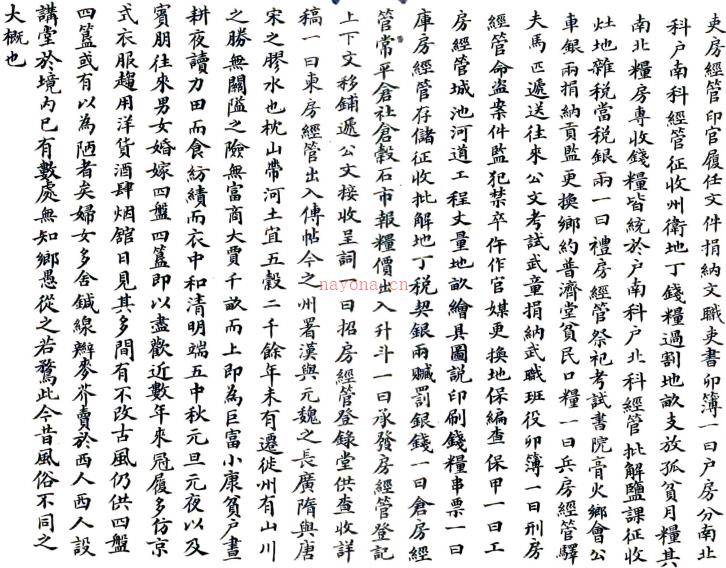 吏房經管印官履任文件捐納文職吏書卯簿一曰戶房分南北
科戶南科經管征收州衛地丁錢糧過割地畝支放孤貧月糧其
南北糧房專收錢糧皆統於戶南科戶北科經管批解鹽課征收
灶地雜稅當稅銀兩一曰禮房經管祭祀考試書院膏火鄉會公
車銀兩捐納貢監更換鄉約普濟堂貧民口糧一曰兵房經管驛
夫馬匹遞送往來公文考試武童捐納武職班役卯簿一曰刑房
經管命盜案件監犯禁卒仵作官媒更換地保編查保甲一曰工
房經管城池河道工程丈量地畝繪具圖說印刷錢糧串票一曰
庫房經管存儲征收批解地丁稅契銀兩贓罰銀錢一曰倉房經
管常平倉社倉穀石市報糧價出入升斗一曰承發房經管登記
上下文移鋪遞公文接收呈詞一曰招房經管登錄堂供查收詳
稿一曰東房經管出入傳帖今之州署漢與元魏之長廣隋與唐
宋之膠水也枕山帶河土宜五穀二千餘年未有遷徙州有山川
之勝無關隘之險無富商大賈千畝而上即為巨富小康貧戶晝
耕夜讀力田而食紡績而衣中和清明端五中秋元旦元夜以及
賓朋往來男女婚嫁四盤四簋即以盡歡近數年來冠履多仿京
式衣服趨用洋貨酒肆烟館日見其多間有不改古風仍供四盤
四簋或有以為陋者矣婦女多舍鍼線辮麥芥賣於西人西人設
講堂於境內已有數處無知鄉愚從之若騖此今昔風俗不同之
大概也
nayona.cn